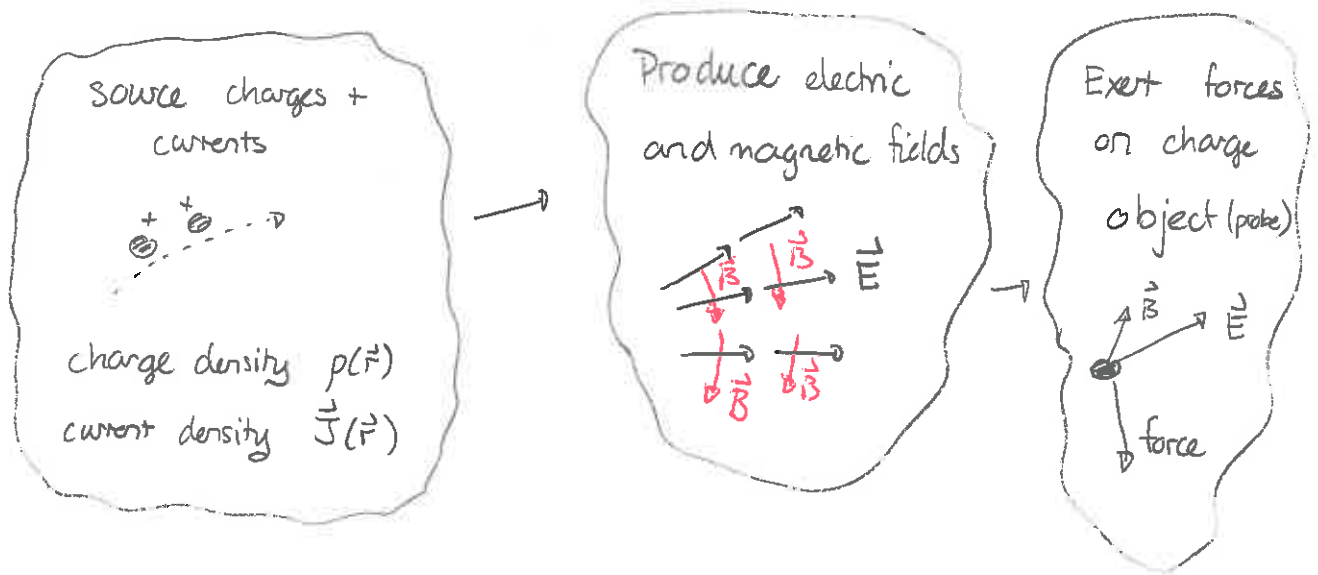 source charges +
currents
+ +
charge density ρ(r⃗)
current density J⃗(r⃗)
Produce electric
and magnetic fields
B⃗ B⃗ E⃗
B⃗ B⃗
Exert forces
on charge
object (probe)
B⃗ E⃗
force